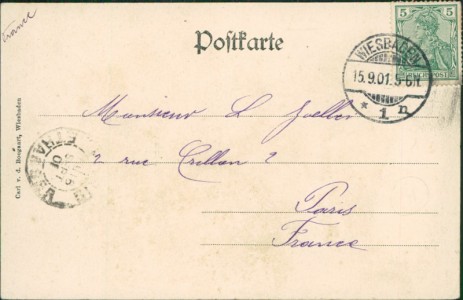 France
Postkarte
5
REICHSPOST
WIESBADEN
15.9.01. 5-6N.
* 1 n
Monsieur L
2 rue Crillon 2
Paris
France
Carl v. d. Boogaart, Wiesbaden
01